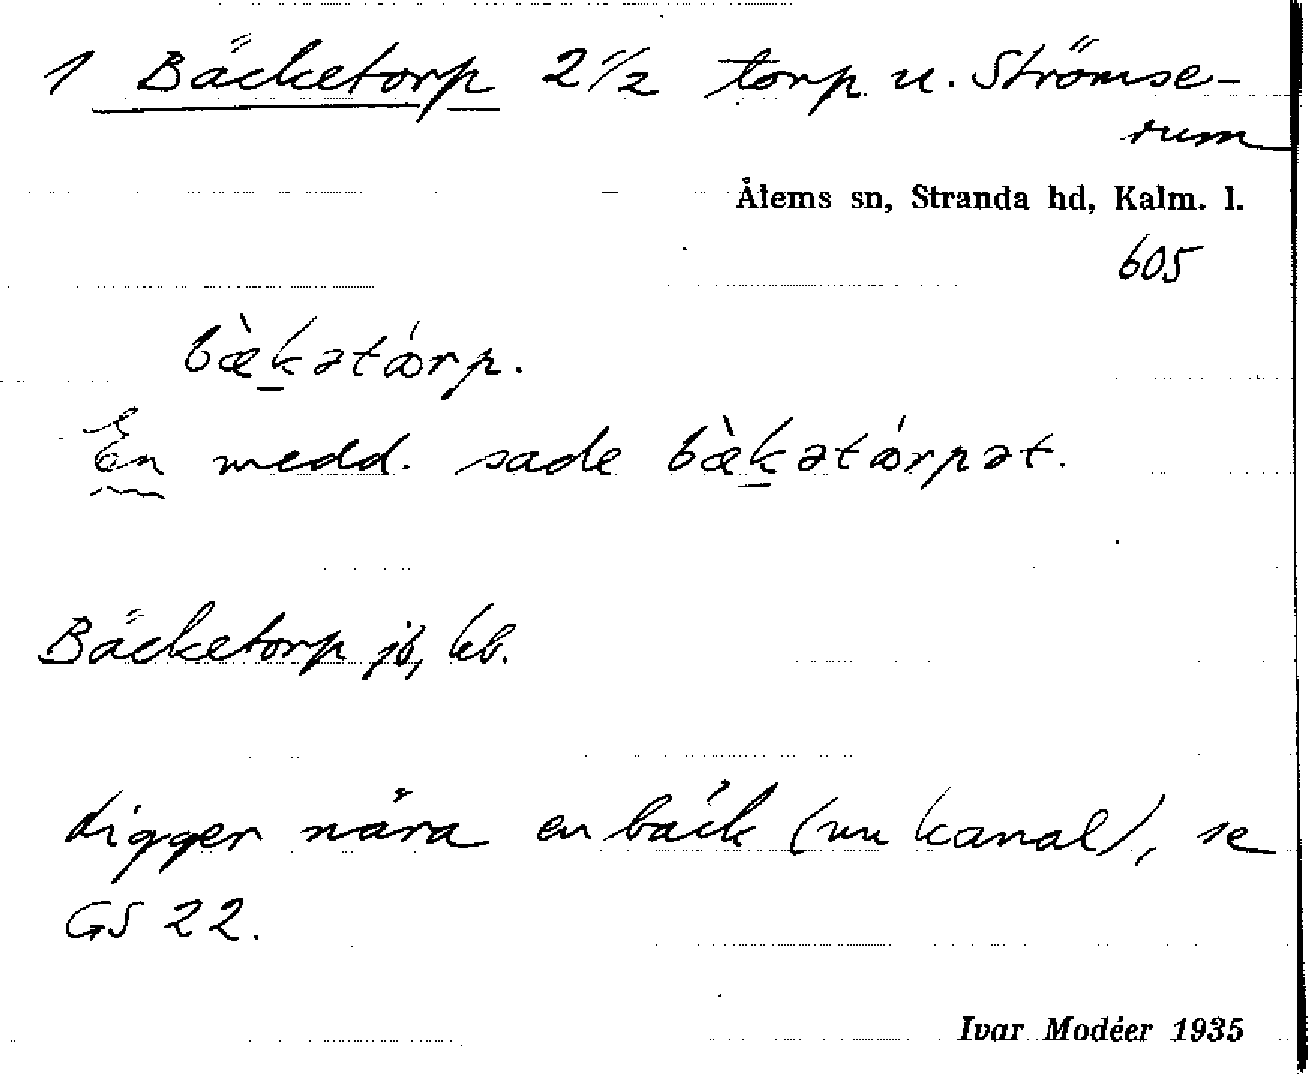 1 Bäcketorp 2 1/2 torp u. Strömse-
rum
Ålems sn, Stranda hd, Kalm. l.
605
bæ̀ḵətǿrp.
En medd. sade bæ̀ḵətǿrpət.
Bäcketorp jb, kb.
Ligger nära en bäck (nu kanal), se
GS 22.
Ivar Modéer 1935